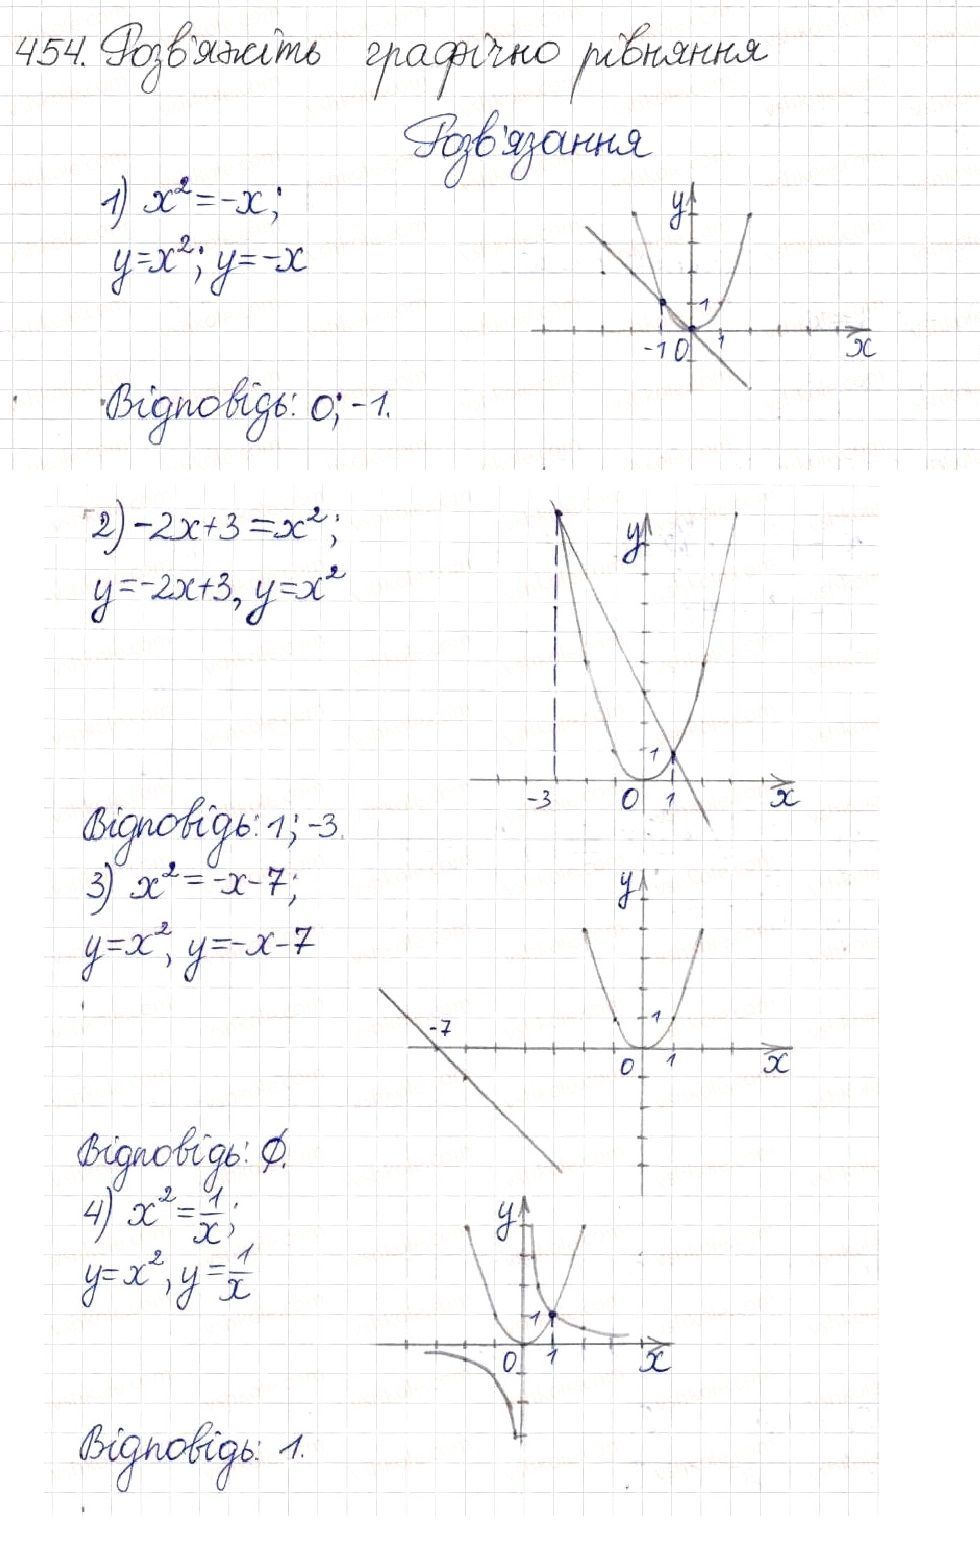 454. Розв'яжіть графічно рівняння
Розв'язання
1) x² = -x;
y=x²; y=-x
y
1
-1 0 1 x
Відповідь: 0; -1.
2) -2x+3 = x²;
y=-2x+3, y=x²
y
1
-3 0 1 x
Відповідь: 1; -3.
3) x² = -x-7;
y=x², y=-x-7
y
-7 1
0 1 x
Відповідь: ∅.
4) x² = 1/x;
y=x², y=1/x
y
1
0 1 x
Відповідь: 1.